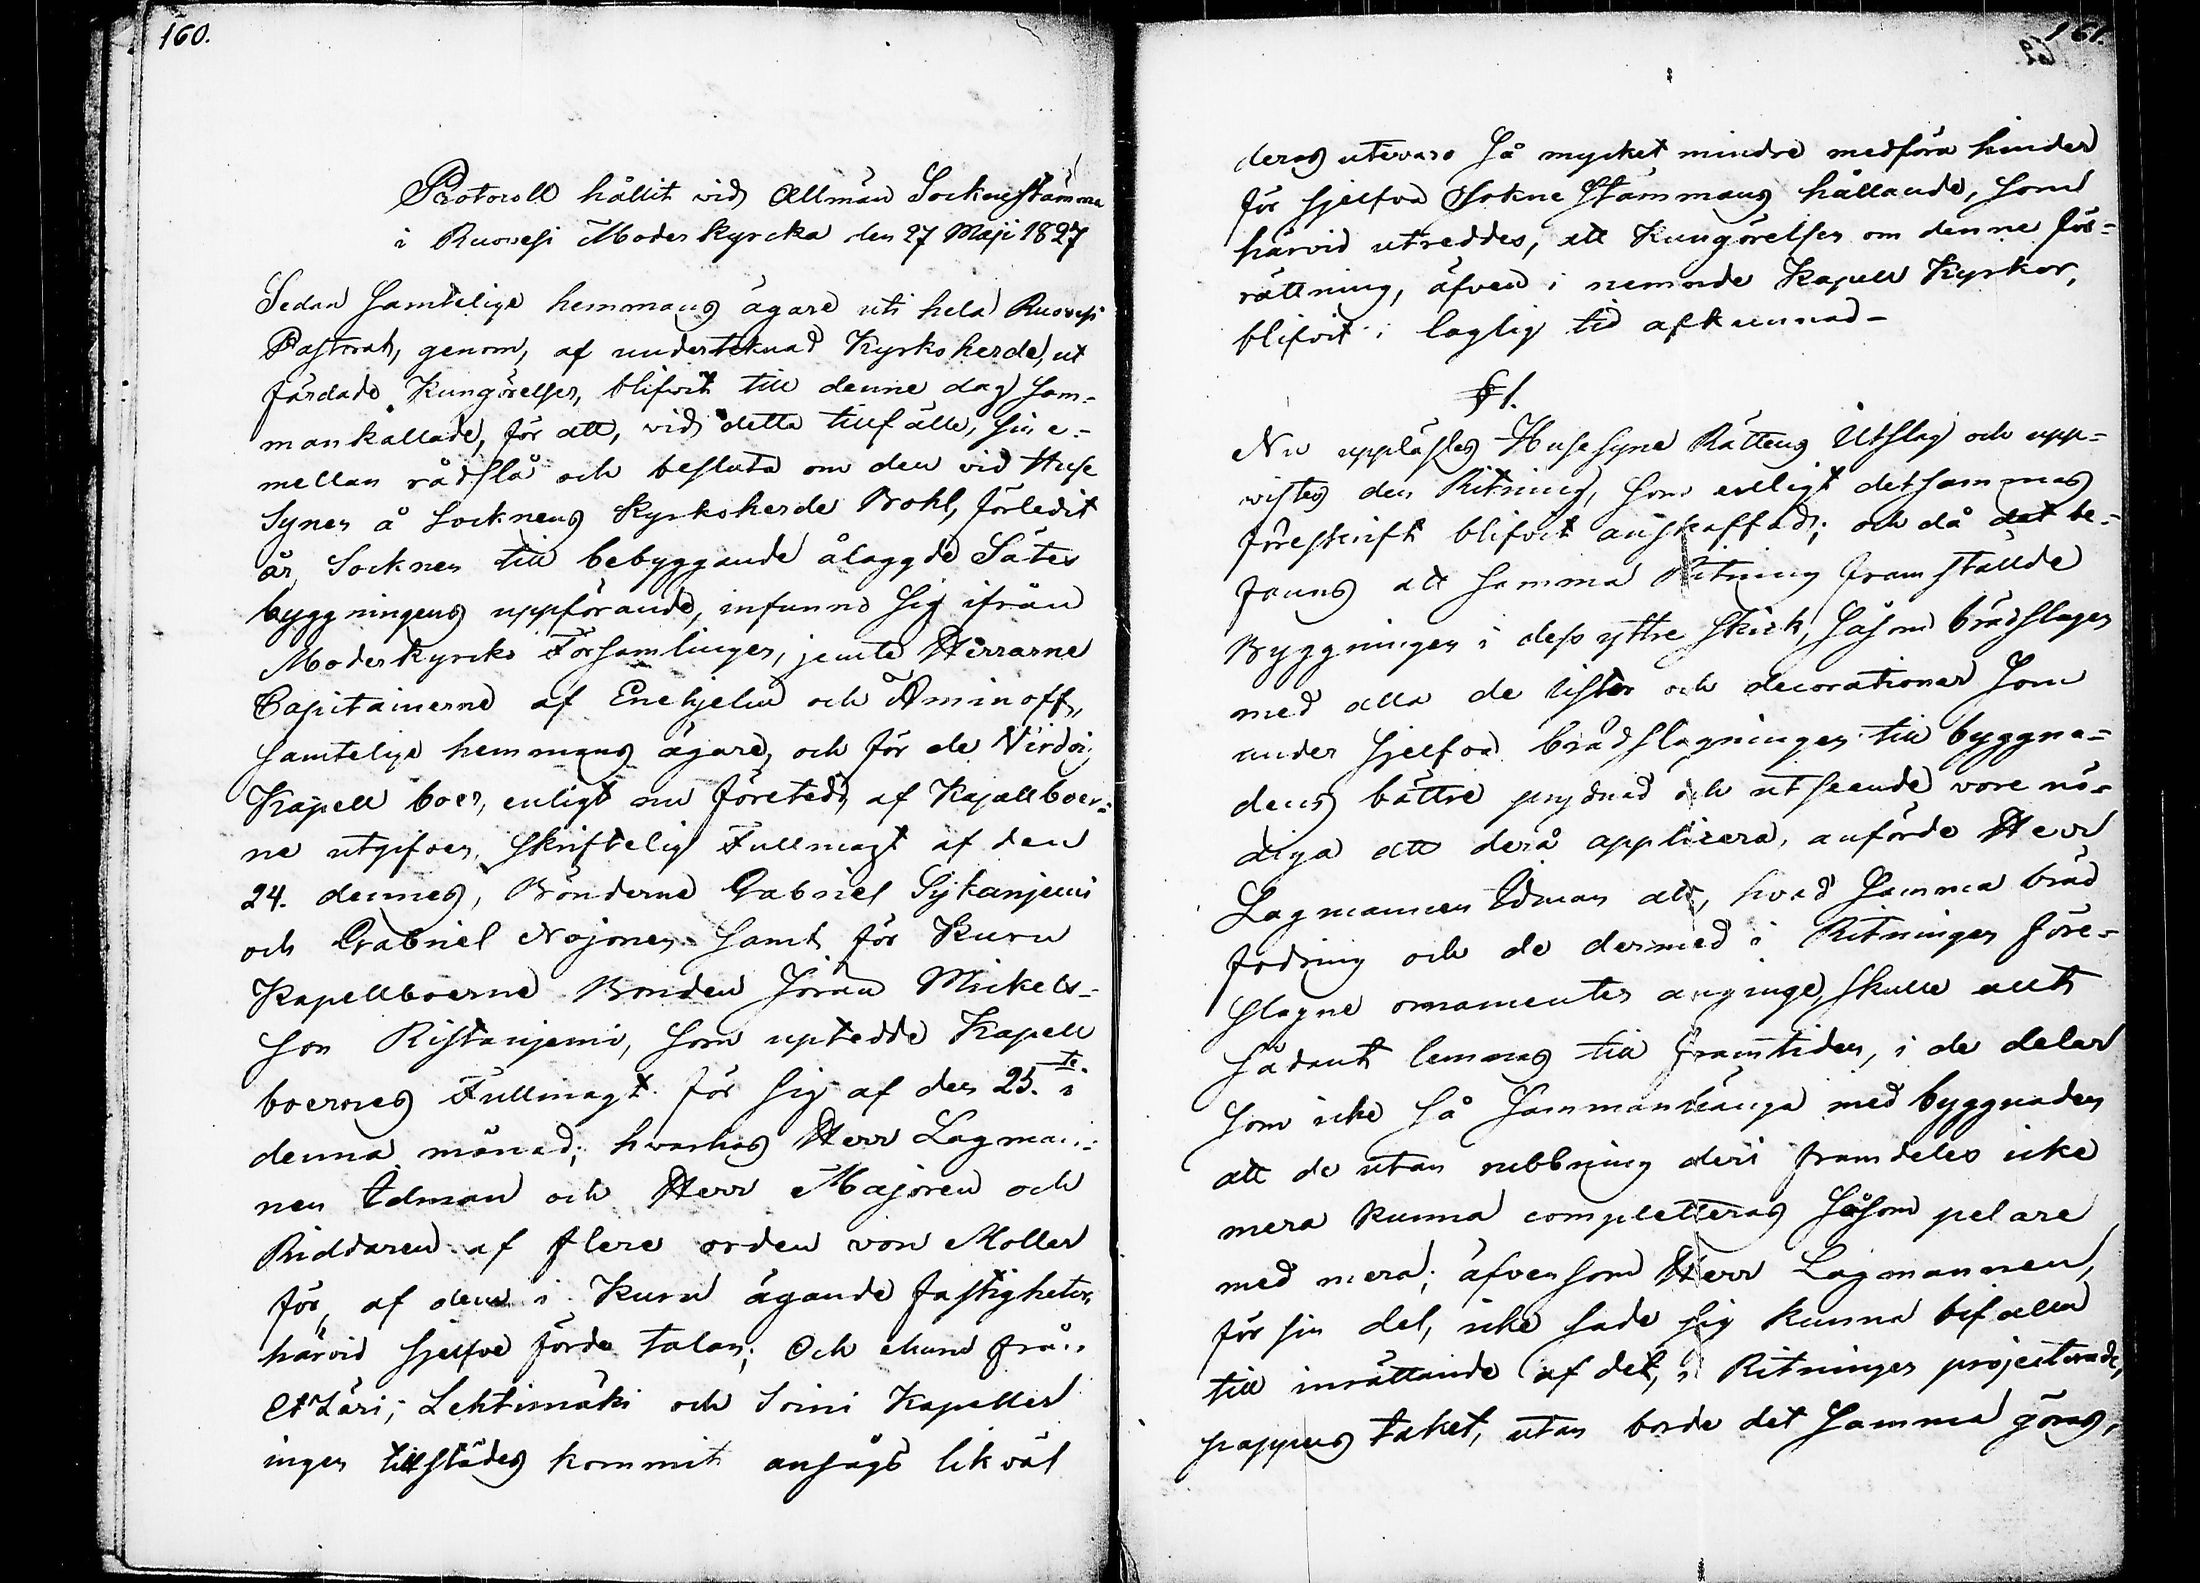 160.
Protocoll hållit vid Allmän Sockne stämma
i Ruovesi Moder kyrcka den 27 Maji 1827
Sedan samtelige hemmans ägare uti hela Ruovesi
Pastorat, genom, af undertecknad Kyrko herde, ut
färdade Kungörelser, blifvit till denne dag sam-
mankallade, för att, vid detta tillfälle, sin e-
mellan rådslå och besluta om den vid Huse
Synen å Socknens Kyrkoherde Bohl, förledit
år Socknen till bebyggande ålaggde Sätes
byggningens uppförande, infunno sig ifrån
Moderkyrko Församlingen, jemte Herrarne
Capitainerne af Enehjelm och Aminoff,
samtelige hemmans ägare, och för de Virdois
Kapell boer, enligt nu företedd, af Kapellboer-
ne utgifven, skriftelig Fullmagt af den
24. dennes, Bönderne Gabriel Sykänjemi
och Gabriel Nojonen samt för Kuru
Kapellboerne Bonden Jöran Mickels-
son Ristanjemi, som uptedde Kapell
boernes Fullmagt för sig af den 25.te i
denna månad; hvarhos Herr Lagman-
nen Idman och Herr Majoren och
Riddaren af flere orden von Moller
för, af dem i Kuru ägande fastigheter,
härvid sjelfve förde talan; Och ehuru från
Etzäri, Lehtimäki och Soini Kapeller
ingen tillstädes kommit ansågs likväl
161.
deras utevaro så mycket mindre medföra hinder
för sjelfva Sokne Stämmans hållande, som
härvid utreddes, att Kungörelsen om denne för-
rättning, äfven i nemnde Kapell Kyrkor,
blifvit i laglig tid afkunnad-
§ 1.
Nu upplästes Husesyne Rättens Utslag och upp-
vistes den Ritning, som enligt detsammas
föreskrift blifvit anskaffad; och då det be-
fanns att samma Ritning framställde
Byggningen i dess yttre skick, såsom brädslagen
med alla de lister och decorationer som
under sjelfva brädslagningen till byggna-
dens bättre prydnad och utseende vore nö-
diga att derå applicera, anförde Herr
Lagmannen Idman att, hvad samma bräd
fodring och de dermed i Ritningen före-
slagne ornamenter anginge, skulle allt
sådant lemnas till framtiden, i de delar
som icke så sammanhänga med byggnaden
att de utan rubbning deri framdeles icke
mera kunna completteras såsom pelare
med mera; äfvensom Herr Lagmannen,
för sin del, icke sade sig kunna bifalla
till inrättande af det, i Ritningen projecterade,
pappens taket, utan borde det samma göras,